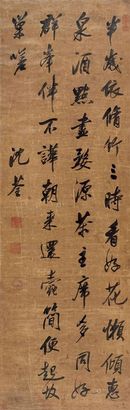 半歲依脩竹三時看好花懶傾惠
泉酒點盡壑源茶主席多同好
群峯伴不譁朝來還蠹簡便起故
巢嗟
沈荃